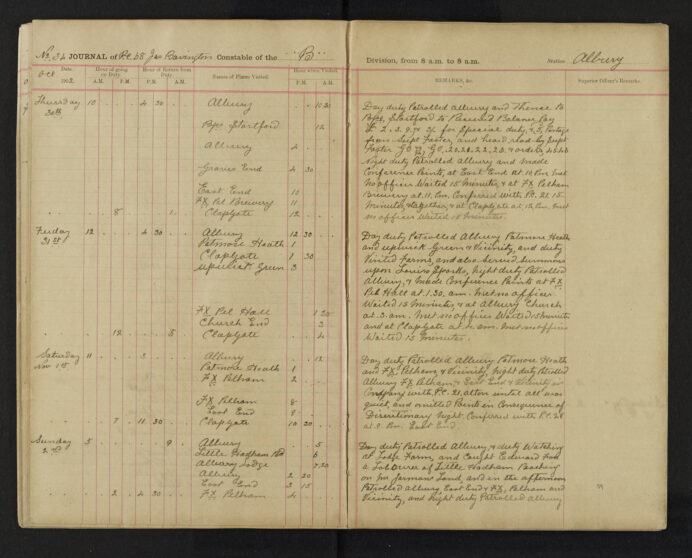 No. 34 JOURNAL of P.C. 68 Jas Bavington Constable of the "B"
Division, from 8 a.m. to 8 a.m. Station Albury
Date. Hour of going on Duty. Hour of Return from Duty. Names of Places Visited. Hour when Visited. REMARKS, &c. Superior Officer's Remarks.
Oct 1902 A.M. P.M. A.M. P.M. A.M. P.M.
Thursday 10 4 30 Albury 10 30
30th
Bps. Stortford 12
Albury 4
Graves End 4 30
East End 10
FX Pel Brewery 11
8 1 Clapgate 12
Friday 12 4 30 Albury 12 30
31st Patmore Heath 1
Clapgate 1 30
Upwick Green 3
FX Pel Hall 1 30
Church End 3
12 5 Clapgate 4
Saturday 11 3 Albury 12
Nov 1st Patmore Heath 1
FX Pelham 2
FX Pelham 8
East End 9
7 11 30 Clapgate 10 30
Sunday 5 9 Albury 5
2nd Little Hadham 6
Albury Lodge 7.30
Albury 2 30
East End 3 15
2 4 30 FX Pelham 4
Day duty Patrolled Albury and thence to
Bps. Stortford to Received Balance Pay
for Special duty, Postage
from Supt Foster, and heard read by Supt
Foster G.O. 20.21.22.23. & orders,
Night duty Patrolled Albury and made
Conference Points, at East End at 10. P.m. met
no officer Waited 15 Minutes, & at FX Pelham
Brewery at 11. P.m. Conferred with P.C. 21. 15
minutes together, & at Clapgate at 12. P.m. met
no officer Waited 15 Minutes.
Day duty Patrolled Albury Patmore Heath
and Upwick Green & Vicinity, and duty
Visited Farms, and also Served Summons
upon Louis Sparks, Night duty Patrolled
Albury, & made Conference Points at FX
Pel Hall at 1.30. a.m. met no officer
Waited 15 Minutes, & at Albury Church
at 3. a.m. met no officer Waited 15 Minutes
and at Clapgate at 4. a.m. met no officer
Waited 15 Minutes.
Day duty Patrolled Albury Patmore Heath
and FX Pelham, & Vicinity, Night duty Patrolled
Albury FX Pelham & East End & Vicinity in
Company with P.C. 21, Alton until all was
quiet, and omitted Points in Consequence of
Discretionary Night. Conferred with P.C. 21
at 9. P.m. East End.
Day duty Patrolled Albury, & duty Watching
at Lodge Farm, and Caught Edward
a Labourer of Little Hadham Poaching
on Mr Jarmans Land, and in the afternoon
Patrolled Albury East End & FX Pelham and
Vicinity, and Night duty Patrolled Albury